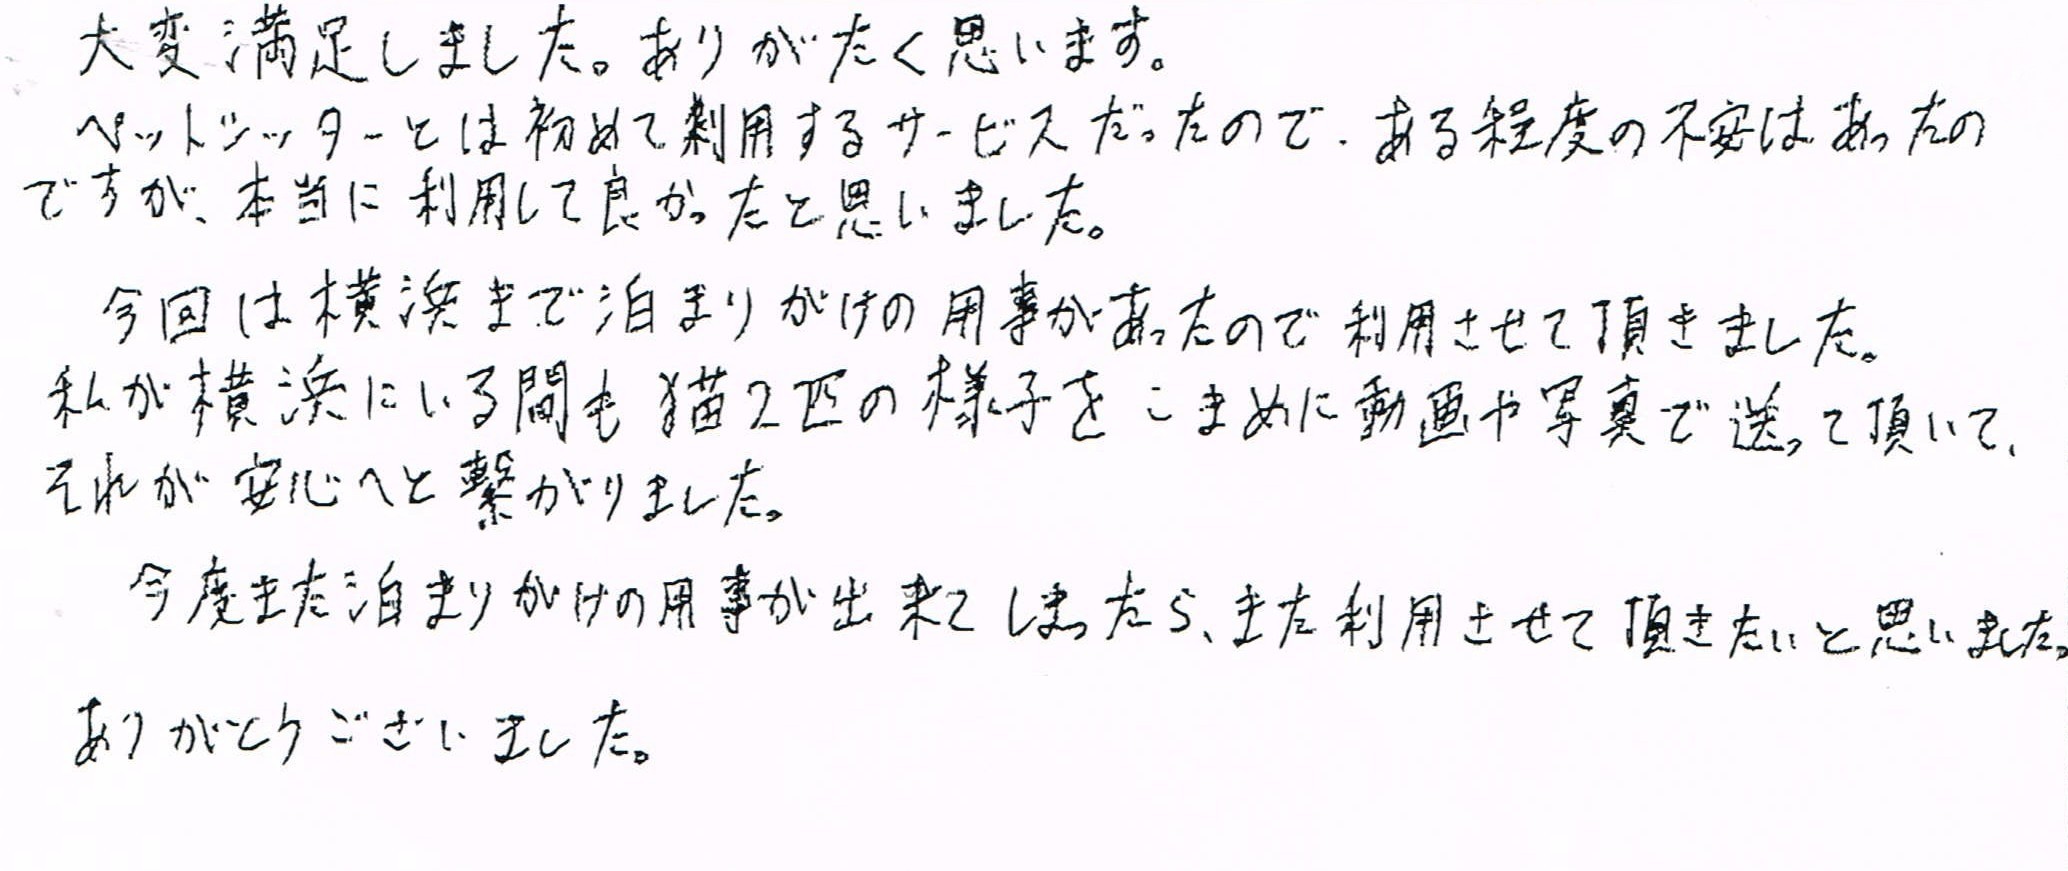 大変満足しました。ありがたく思います。
ペットシッターとは初めて利用するサービスだったので、ある程度の不安はあったの
ですが、本当に利用して良かったと思いました。
今回は横浜まで泊まりがけの用事があったので利用させて頂きました。
私が横浜にいる間も猫2匹の様子をこまめに動画や写真で送って頂いて、
それが安心へと繋がりました。
今度また泊まりがけの用事が出来てしまったら、また利用させて頂きたいと思いました。
ありがとうございました。